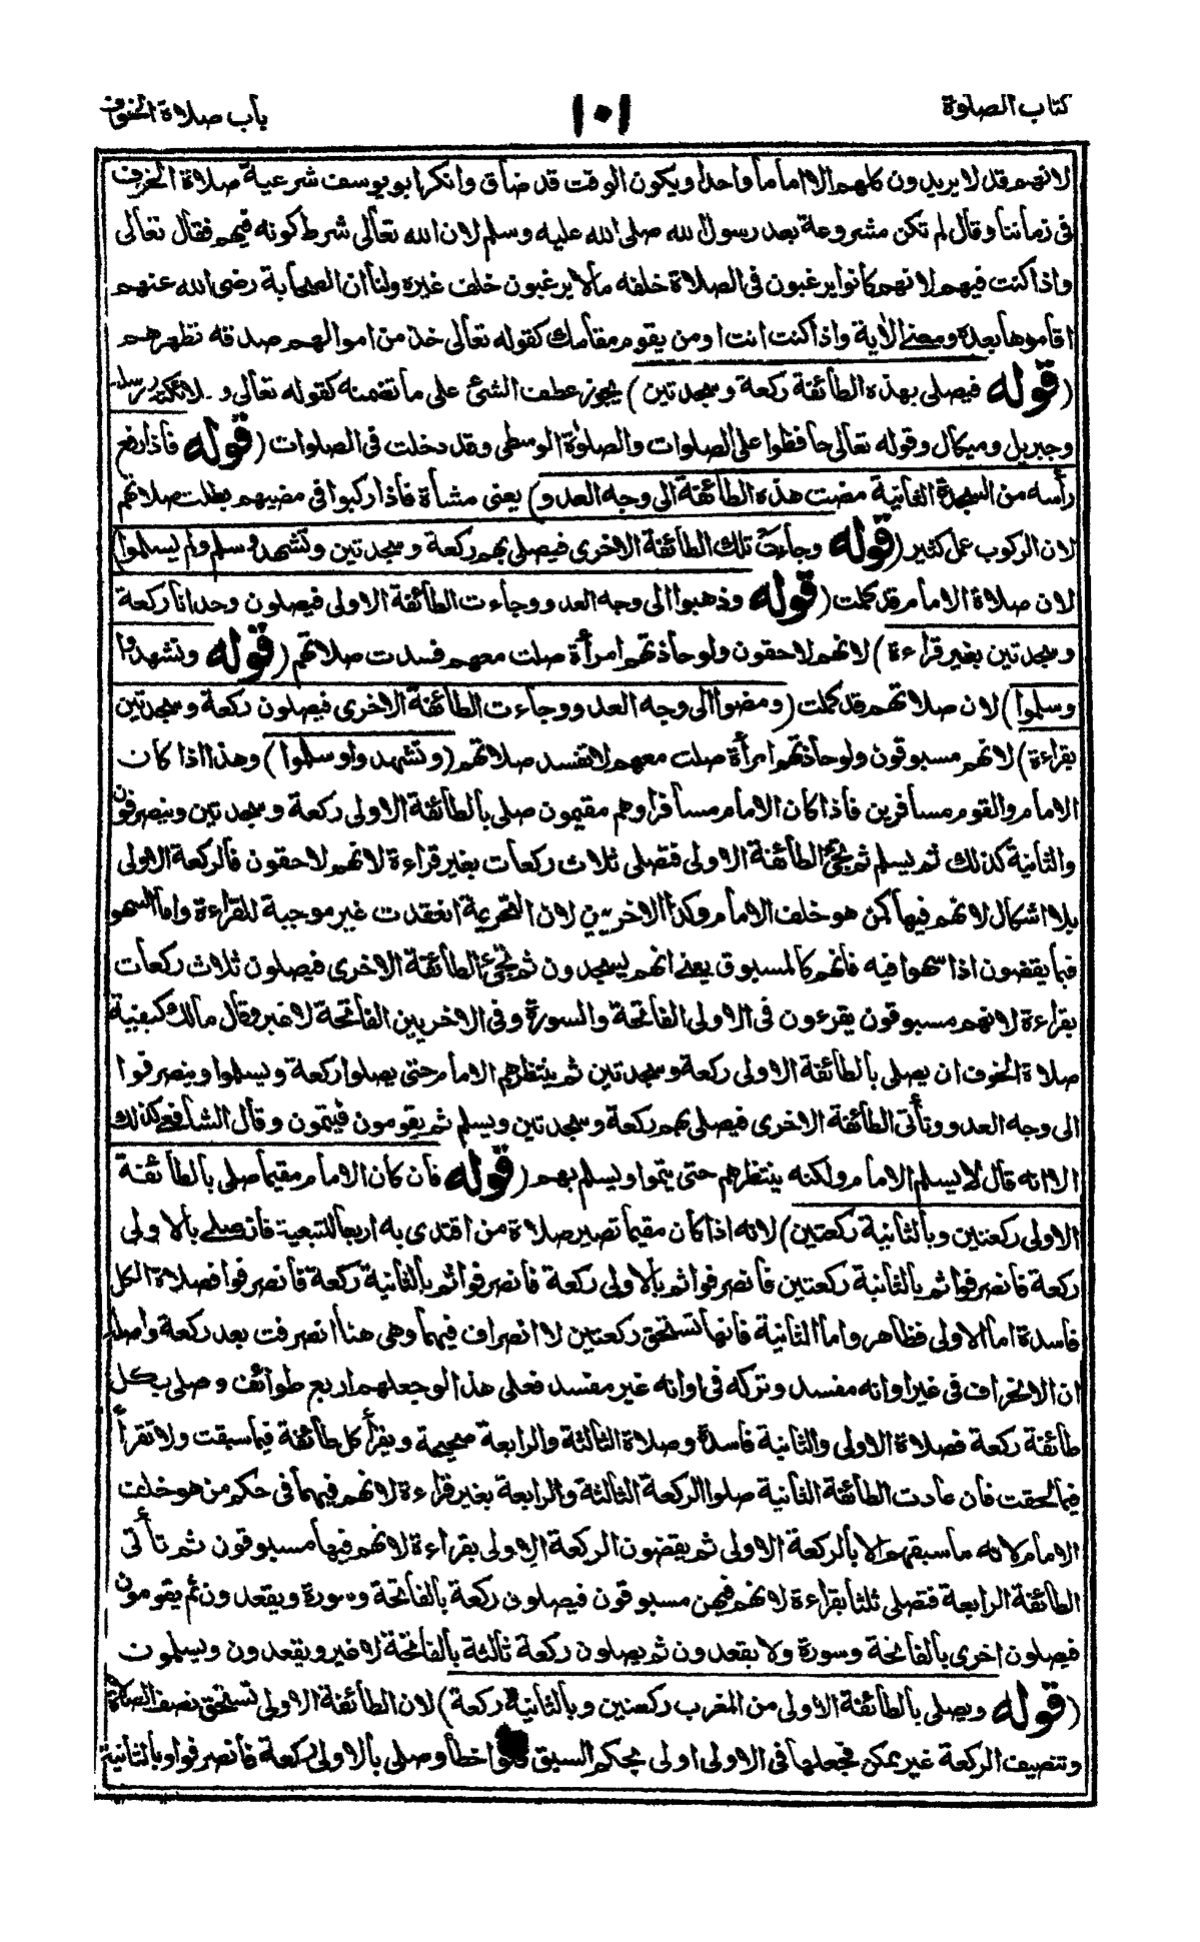 كتاب الصلوة
١٠١
باب صلاة الخوف
لانهم قد لا يريدون كلهم الا اماما واحدا ويكون الوقت قد ضاق وانكر ابو يوسف شرعية صلاة الخوف
فى زماننا وقال لم تكن مشروعة بعد رسول الله صلى الله عليه وسلم لان الله تعالى شرط كونه فيهم فقال تعالى
واذا كنت فيهم لانهم كانوا يرغبون فى الصلاة خلفه ما لا يرغبون خلف غيره ولنا ان الصحابة رضى الله عنهم
اقاموها بعده ومعنى الاية واذا كنت انت او من يقوم مقامك كقوله تعالى خذ من اموالهم صدقه تطهرهم
(قوله فيصلى بهذه الطائفة ركعة وسجدتين) يجوز عطف الشئ على ما تضمنه كقوله تعالى و
وجبريل وميكال وقوله تعالى حافظوا على الصلوات والصلوة الوسطى وقد دخلت فى الصلوات (قوله فاذا رفع
رأسه من السجدة الثانية مضت هذه الطائفة الى وجه العدو) يعنى مشاة فاذا ركبوا فى مضيهم بطلت صلاتهم
لان الركوب عمل كثير (قوله وجاءت تلك الطائفة الاخرى فيصلى بهم ركعة وسجدتين وتشهد وسلم ولم يسلموا)
لان صلاة الامام قد كملت (قوله وذهبوا الى وجه العدو وجاءت الطائفة الاولى فيصلون وحدانا ركعة
وسجدتين بغير قراءة) لانهم لاحقون ولو حاذتهم امرأة صلت معهم فسدت صلاتهم (قوله وتشهدوا
وسلموا) لان صلاتهم قد كملت (ومضوا الى وجه العدو وجاءت الطائفة الاخرى فيصلون ركعة وسجدتين
بقراءة) لانهم مسبوقون ولو حاذتهم امرأة صلت معهم لا تفسد صلاتهم (وتشهدوا وسلموا) وهذا اذا كان
الامام والقوم مسافرين فاذا كان الامام مسافرا وهم مقيمون صلى بالطائفة الاولى ركعة وسجدتين وينصرفون
والثانية كذلك ثم يسلم ثم تجئ الطائفة الاولى فتصلى ثلاث ركعات بغير قراءة لانهم لاحقون فالركعة الاولى
بلا اشكال لانهم فيها كمن هو خلف الامام وكذا الاخريين لان التحريمة انعقدت غير موجبة للقراءة واما السهو
فيما يقضون اذا سهوا فيه فانهم كالمسبوق يعنى انهم يسجدون ثم تجئ الطائفة الاخرى فيصلون ثلاث ركعات
بقراءة لانهم مسبوقون يقرءون فى الاولى الفاتحة والسورة وفى الاخريين الفاتحة لا غير وقال مالك كيفية
صلاة الخوف ان يصلى بالطائفة الاولى ركعة وسجدتين ثم ينتظرهم الامام حتى يصلوا ركعة ويسلموا وينصرفوا
الى وجه العدو وتأتى الطائفة الاخرى فيصلى بهم ركعة وسجدتين ويسلم ثم يقومون فيتمون وقال الشافعى كذلك
الا انه قال لا يسلم الامام ولكنه ينتظرهم حتى يتموا ويسلم بهم (قوله فان كان الامام مقيما صلى بالطائفة
الاولى ركعتين وبالثانية ركعتين) لانه اذا كان مقيما تصير صلاة من اقتدى به اربعا للتبعية فان صلى بالاولى
ركعة فانصرفوا ثم بالثانية ركعتين فانصرفوا ثم بالاولى ركعة فانصرفوا ثم بالثانية ركعة فانصرفوا فصلاة الكل
فاسدة اما الاولى فظاهر واما الثانية فانها تستحق ركعتين لا انصراف فيهما وهى هنا انصرفت بعد ركعة واصله
ان الانحراف فى غير اوانه مفسد وتركه فى اوانه غير مفسد فعلى هذا لو جعلهم اربع طوائف وصلى بكل
طائفة ركعة فصلاة الاولى والثانية فاسدة وصلاة الثالثة والرابعة صحيحة ويقرأ كل طائفة فيما سبقت ولا تقرأ
فيما لحقت فان عادت الطائفة الثانية صلوا الركعة الثالثة والرابعة بغير قراءة لانهم فيهما فى حكم من هو خلف
الامام لانه ما سبقهم الا بالركعة الاولى ثم يقضون الركعة الاولى بقراءة لانهم فيها مسبوقون ثم تأتى
الطائفة الرابعة فتصلى ثلثا بقراءة لانهم فيهن مسبوقون فيصلون ركعة بالفاتحة وسورة ويقعدون ثم يقومون
فيصلون اخرى بالفاتحة وسورة ولا يقعدون ثم يصلون ركعة ثالثة بالفاتحة لا غير ويقعدون ويسلمون
(قوله ويصلى بالطائفة الاولى من المغرب ركعتين وبالثانية ركعة) لان الطائفة الاولى تستحق نصف الصلاة
وتنصيف الركعة غير يمكن فجعلها فى الاولى اولى بحكم السبق اخطأ وصلى بالاولى ركعة فانصرفوا وبالثانية